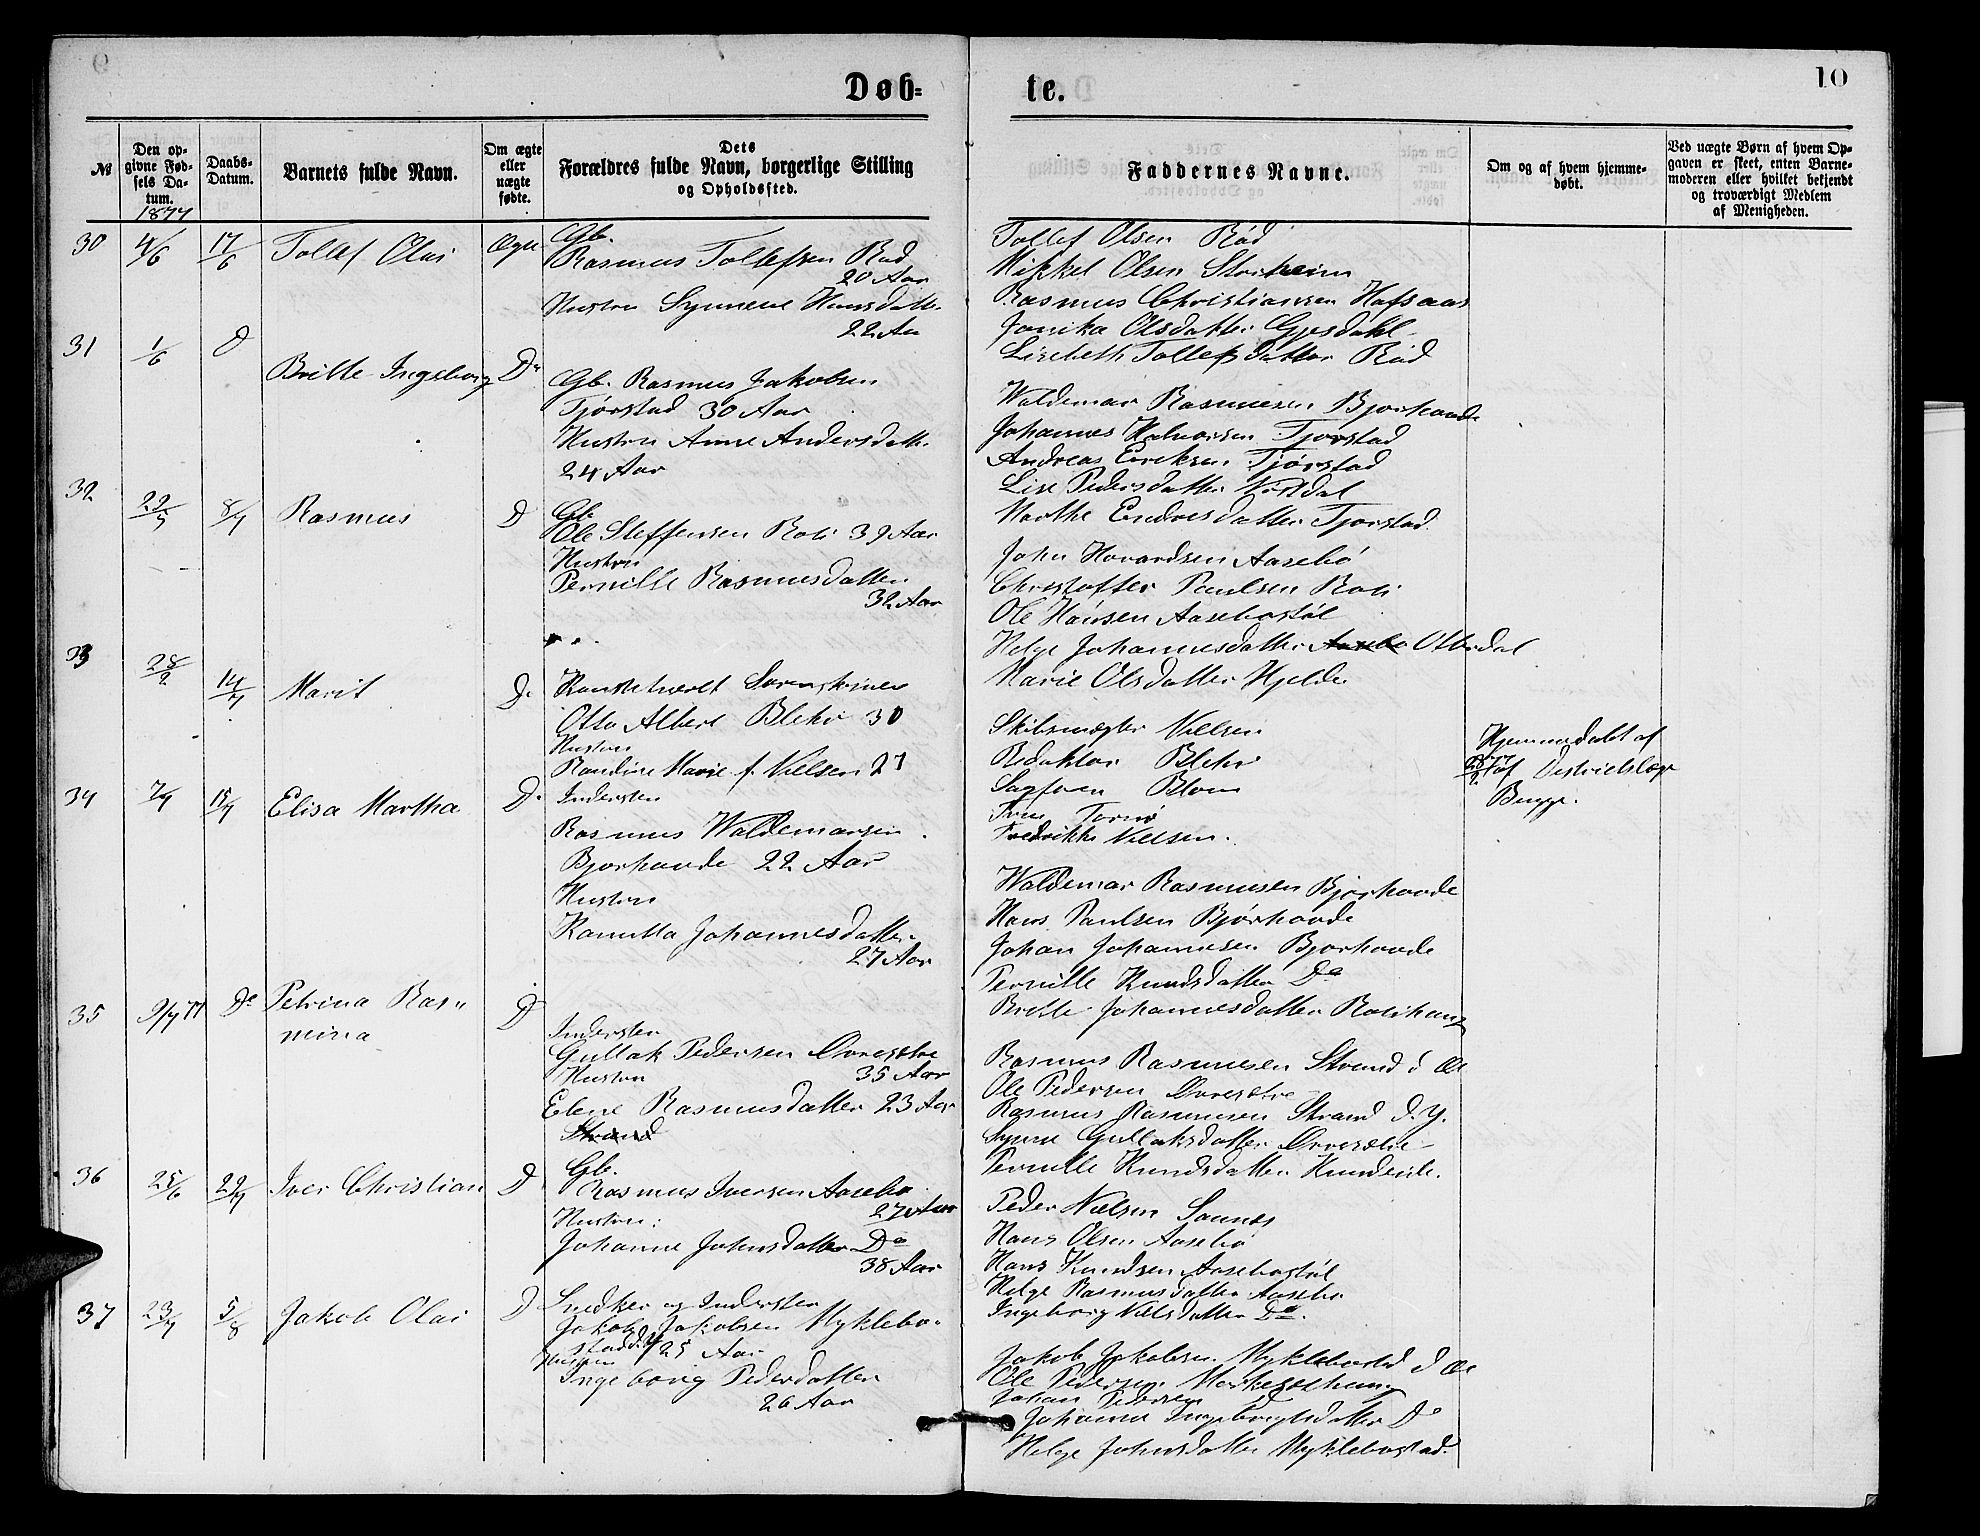 Døb-
te.
10
№
Den op-
givne Fød-
sels Da-
tum.
1877
Daabs-
Datum.
Barnets fulde Navn.
Om ægte
eller
uægte
fødte.
Dets
Forældres fulde Navn, borgerlige Stilling
og Opholdssted.
Faddernes Navne.
Om og af hvem hjemme-
døbt.
Ved uægte Børn af hvem Op-
gaven er skeet, enten Barne-
moderen eller hvilket bekjendt
og troværdigt Medlem
af Menigheden.
30 4/6 17/6 Tollef Olai Ægte
Gb.
Rasmus Tollefsen Rød
20 Aar
Hustru Synneve Hansdatt.
22 Aa
Tollef Olsen Rød
Mikkel Olsen Storheim
Rasmus Christiansen Hafsaas
Jonika Olsdatter Gjesdahl
Lisebeth Tollefsdatter Rød
31 1/6 D
Britte Ingeborg Do
Gb. Rasmus Jakobsen
Tjørstad 30 Aar
Hustru Anne Andersdatt.
24 Aar
Waldemar Rasmusen Bjorhovde
Johannes Halvorsen Tjørstad
Andreas Eriksen Tjørstad
Lise Pedersdatter
Marthe Endresdatter Tjørstad
32 8/7 Rasmus D
Gb.
Ole Steffensen Roti 39 Aar
Hustru
Pernille Rasmusdatter
32 Aar
John Hovardsen Aasebø
Christoffer Paulsen Roti
Ole Hansen Aasebøstøl
Helge Johannesdatter Aasebø
Marie Olsdatter Hjelde
33 28/2 14/7 Marit Do
Konstitueret Sorenskriver
Otto Albert Blehr 30
Hustru
Randine Marie f. Nielsen 27
Skibsmægler Nielsen
Redaktør Blehr
Sagfører Blom
Fredrikke Nielsen.
Hjemmedøbt af
28/2 77 af Destriktslæge
Bugge.
34 7/7 15/7 Elisa Martha Do
Inderster
Rasmus Waldemarsen
Bjorhovde 22 Aar
Hustru
Kanutta Johannesdatter
27 Aar
Waldemar Rasmusen Bjørhovde
Hans Paulsen Bjørhovde
Johan Johannesen Bjorhovde
Pernille Knudsdatter Do
Britte Johannesdatter Rotihaug
35 9/7 77 Do Petrina Ras"
mina
D
Inderster
Gullak Pedersen Øvresætre
Hustru 35 Aar
Elene Rasmusdatter 23 Aar
Strand
Rasmus Rasmusen Strand d Æl
Ole Pedersen Øvresætre
Rasmus Rasmusen Strand d. Y.
Synne Gullaksdatter Øvresætre
Pernille Knudsdatter
36 25/6 29/7 Iver Christian D
Gb.
Rasmus Iversen Aasebø
Hustru: 27 Aar
Johanne Johnsdatter Do
38 Aar
Peder Nielsen Saunes
Hans Olsen Aasebø
Hans Knudsen Aasebøstøl
Helge Rasmusdatter Aasebø
Ingeborg Nielsdatter Do.
37 23/7 5/8 Jakob Olai D
Snedker og Inderster
Jakob Jakobsen Myklebo-
stad d Y 25 Aar
Hustru
Ingeborg Pedersdatter
26 Aar
Jakob Jakobsen Myklebostad d Æl
Ole Pedersen
Johan Pedersen
Johanne Ingebrigtsdatter Do
Helge Johnsdatter Myklebostad.